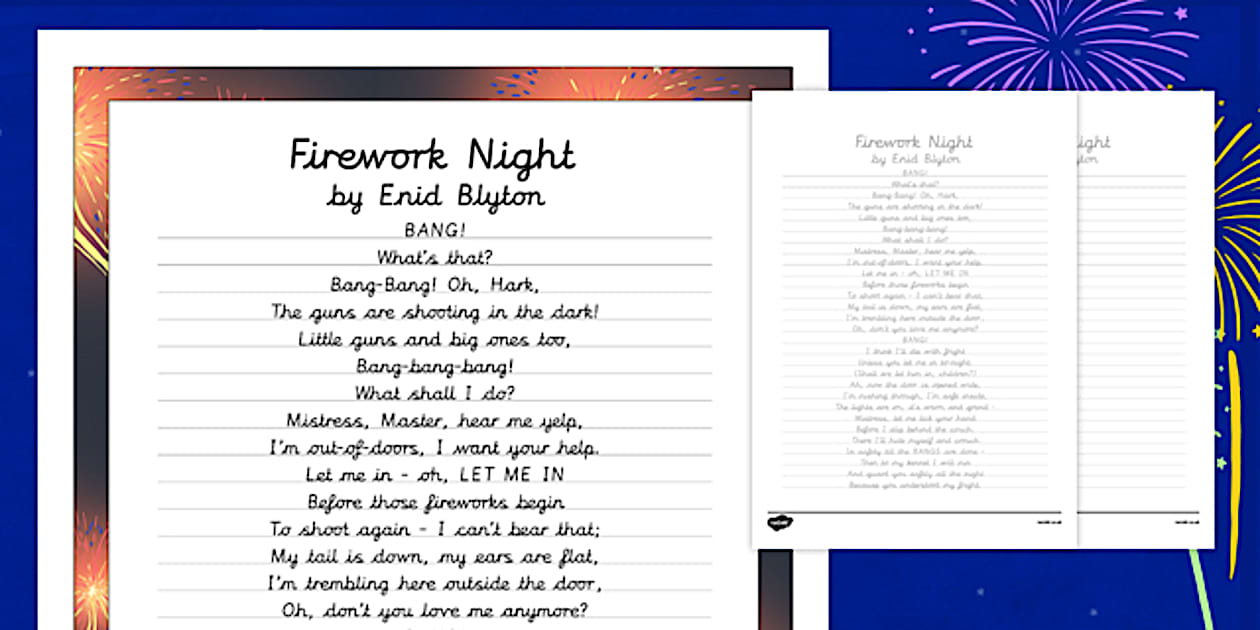 Firework Night
by Enid Blyton
BANG!
What's that?
Bang-Bang! Oh, Hark,
The guns are shooting in the dark!
Little guns and big ones too,
Bang-bang-bang!
What shall I do?
Mistress, Master, hear me yelp,
I'm out-of-doors, I want your help.
Let me in - oh, LET ME IN
Before those fireworks begin
To shoot again - I can't bear that;
My tail is down, my ears are flat,
I'm trembling here outside the door,
Oh, don't you love me anymore?
Firework Night
by Enid Blyton
BANG!
What's that?
Bang-Bang! Oh, Hark,
The guns are shooting in the dark!
Little guns and big ones too,
Bang-bang-bang!
What shall I do?
Mistress, Master, hear me yelp,
I'm out-of-doors, I want your help.
Let me in - oh, LET ME IN
Before those fireworks begin
To shoot again - I can't bear that;
My tail is down, my ears are flat,
I'm trembling here outside the door,
Oh, don't you love me anymore?
BANG!
I think I'll die with fright
Unless you let me in to-night.
(Shall we let him in, children?)
Ah, now the door is opened wide,
I'm rushing through, I'm safe inside,
The lights are on, it's warm and grand -
Mistress, let me lick your hand
Before I slip behind the couch.
There I'll hide myself and crouch
In safety till the BANGS are done -
Then to my kennel I will run
And guard you safely all the night
Because you understand my fright.
ight
ton